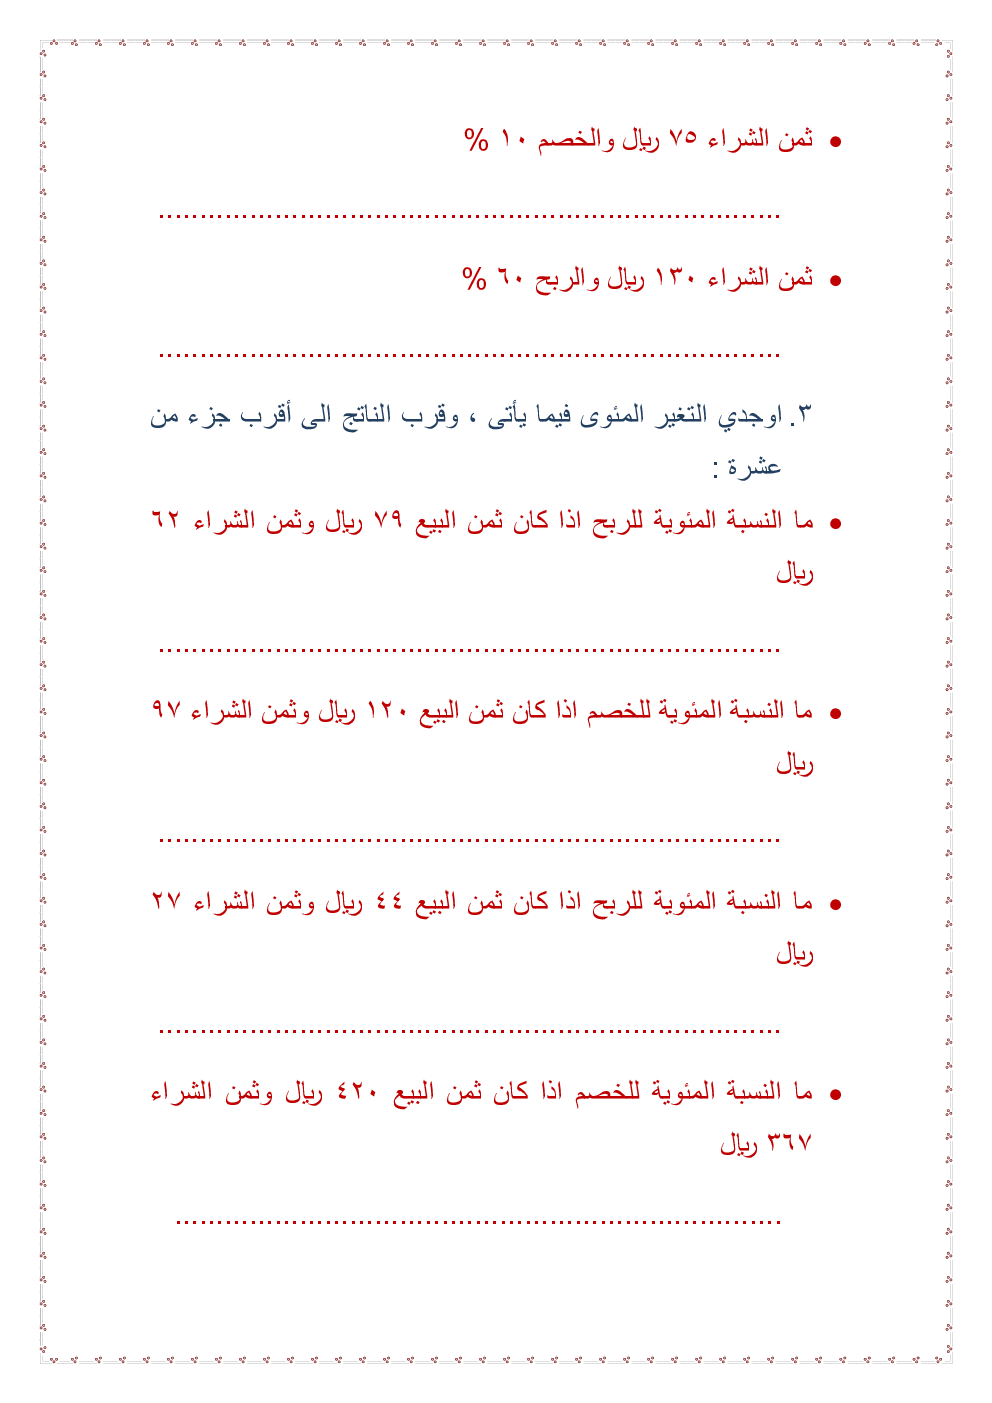 • ثمن الشراء ٧٥ ريال والخصم ١٠ %
...........................................................................
• ثمن الشراء ١٣٠ ريال والربح ٦٠ %
...........................................................................
٣. اوجدي التغير المئوى فيما يأتى ، وقرب الناتج الى أقرب جزء من
عشرة :
• ما النسبة المئوية للربح اذا كان ثمن البيع ٧٩ ريال وثمن الشراء ٦٢
ريال
...........................................................................
• ما النسبة المئوية للخصم اذا كان ثمن البيع ١٢٠ ريال وثمن الشراء ٩٧
ريال
...........................................................................
• ما النسبة المئوية للربح اذا كان ثمن البيع ٤٤ ريال وثمن الشراء ٢٧
ريال
...........................................................................
• ما النسبة المئوية للخصم اذا كان ثمن البيع ٤٢٠ ريال وثمن الشراء
٣٦٧ ريال
.........................................................................